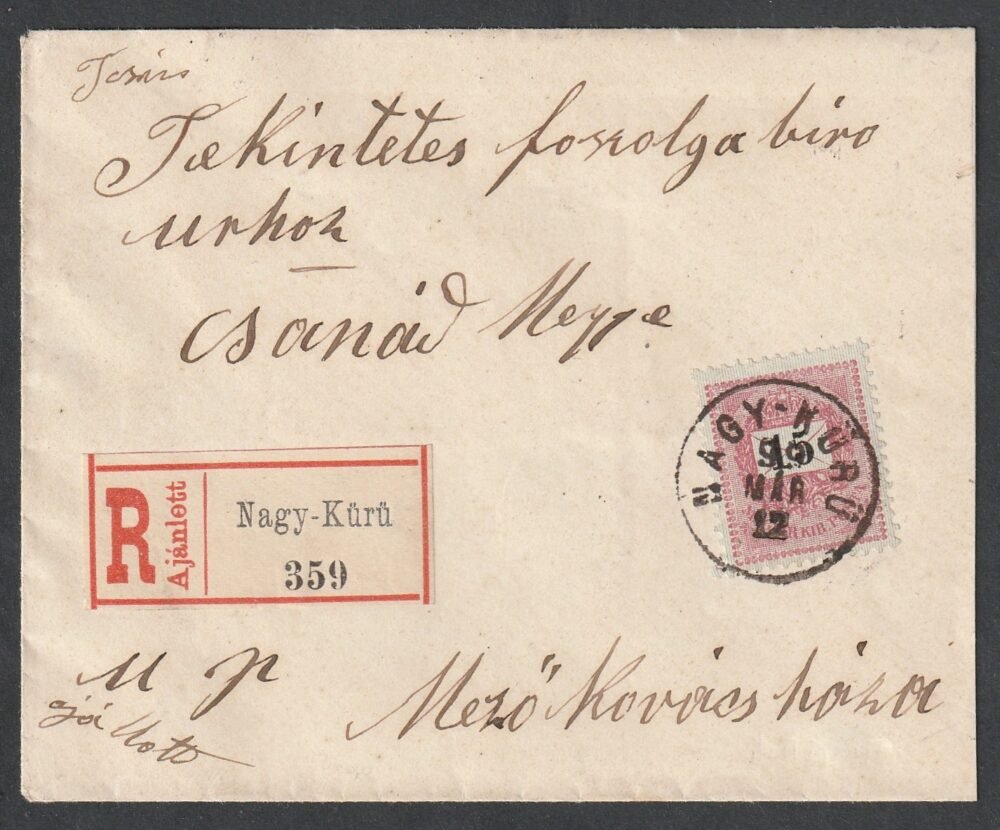 Tekintetes foszolga biro
urhoz
Csanád Megye
R
Ajánlott
Nagy-Kürü
359
NAGY-KÜRÜ
MÁR
12
15
u p
Mező Kovács háza